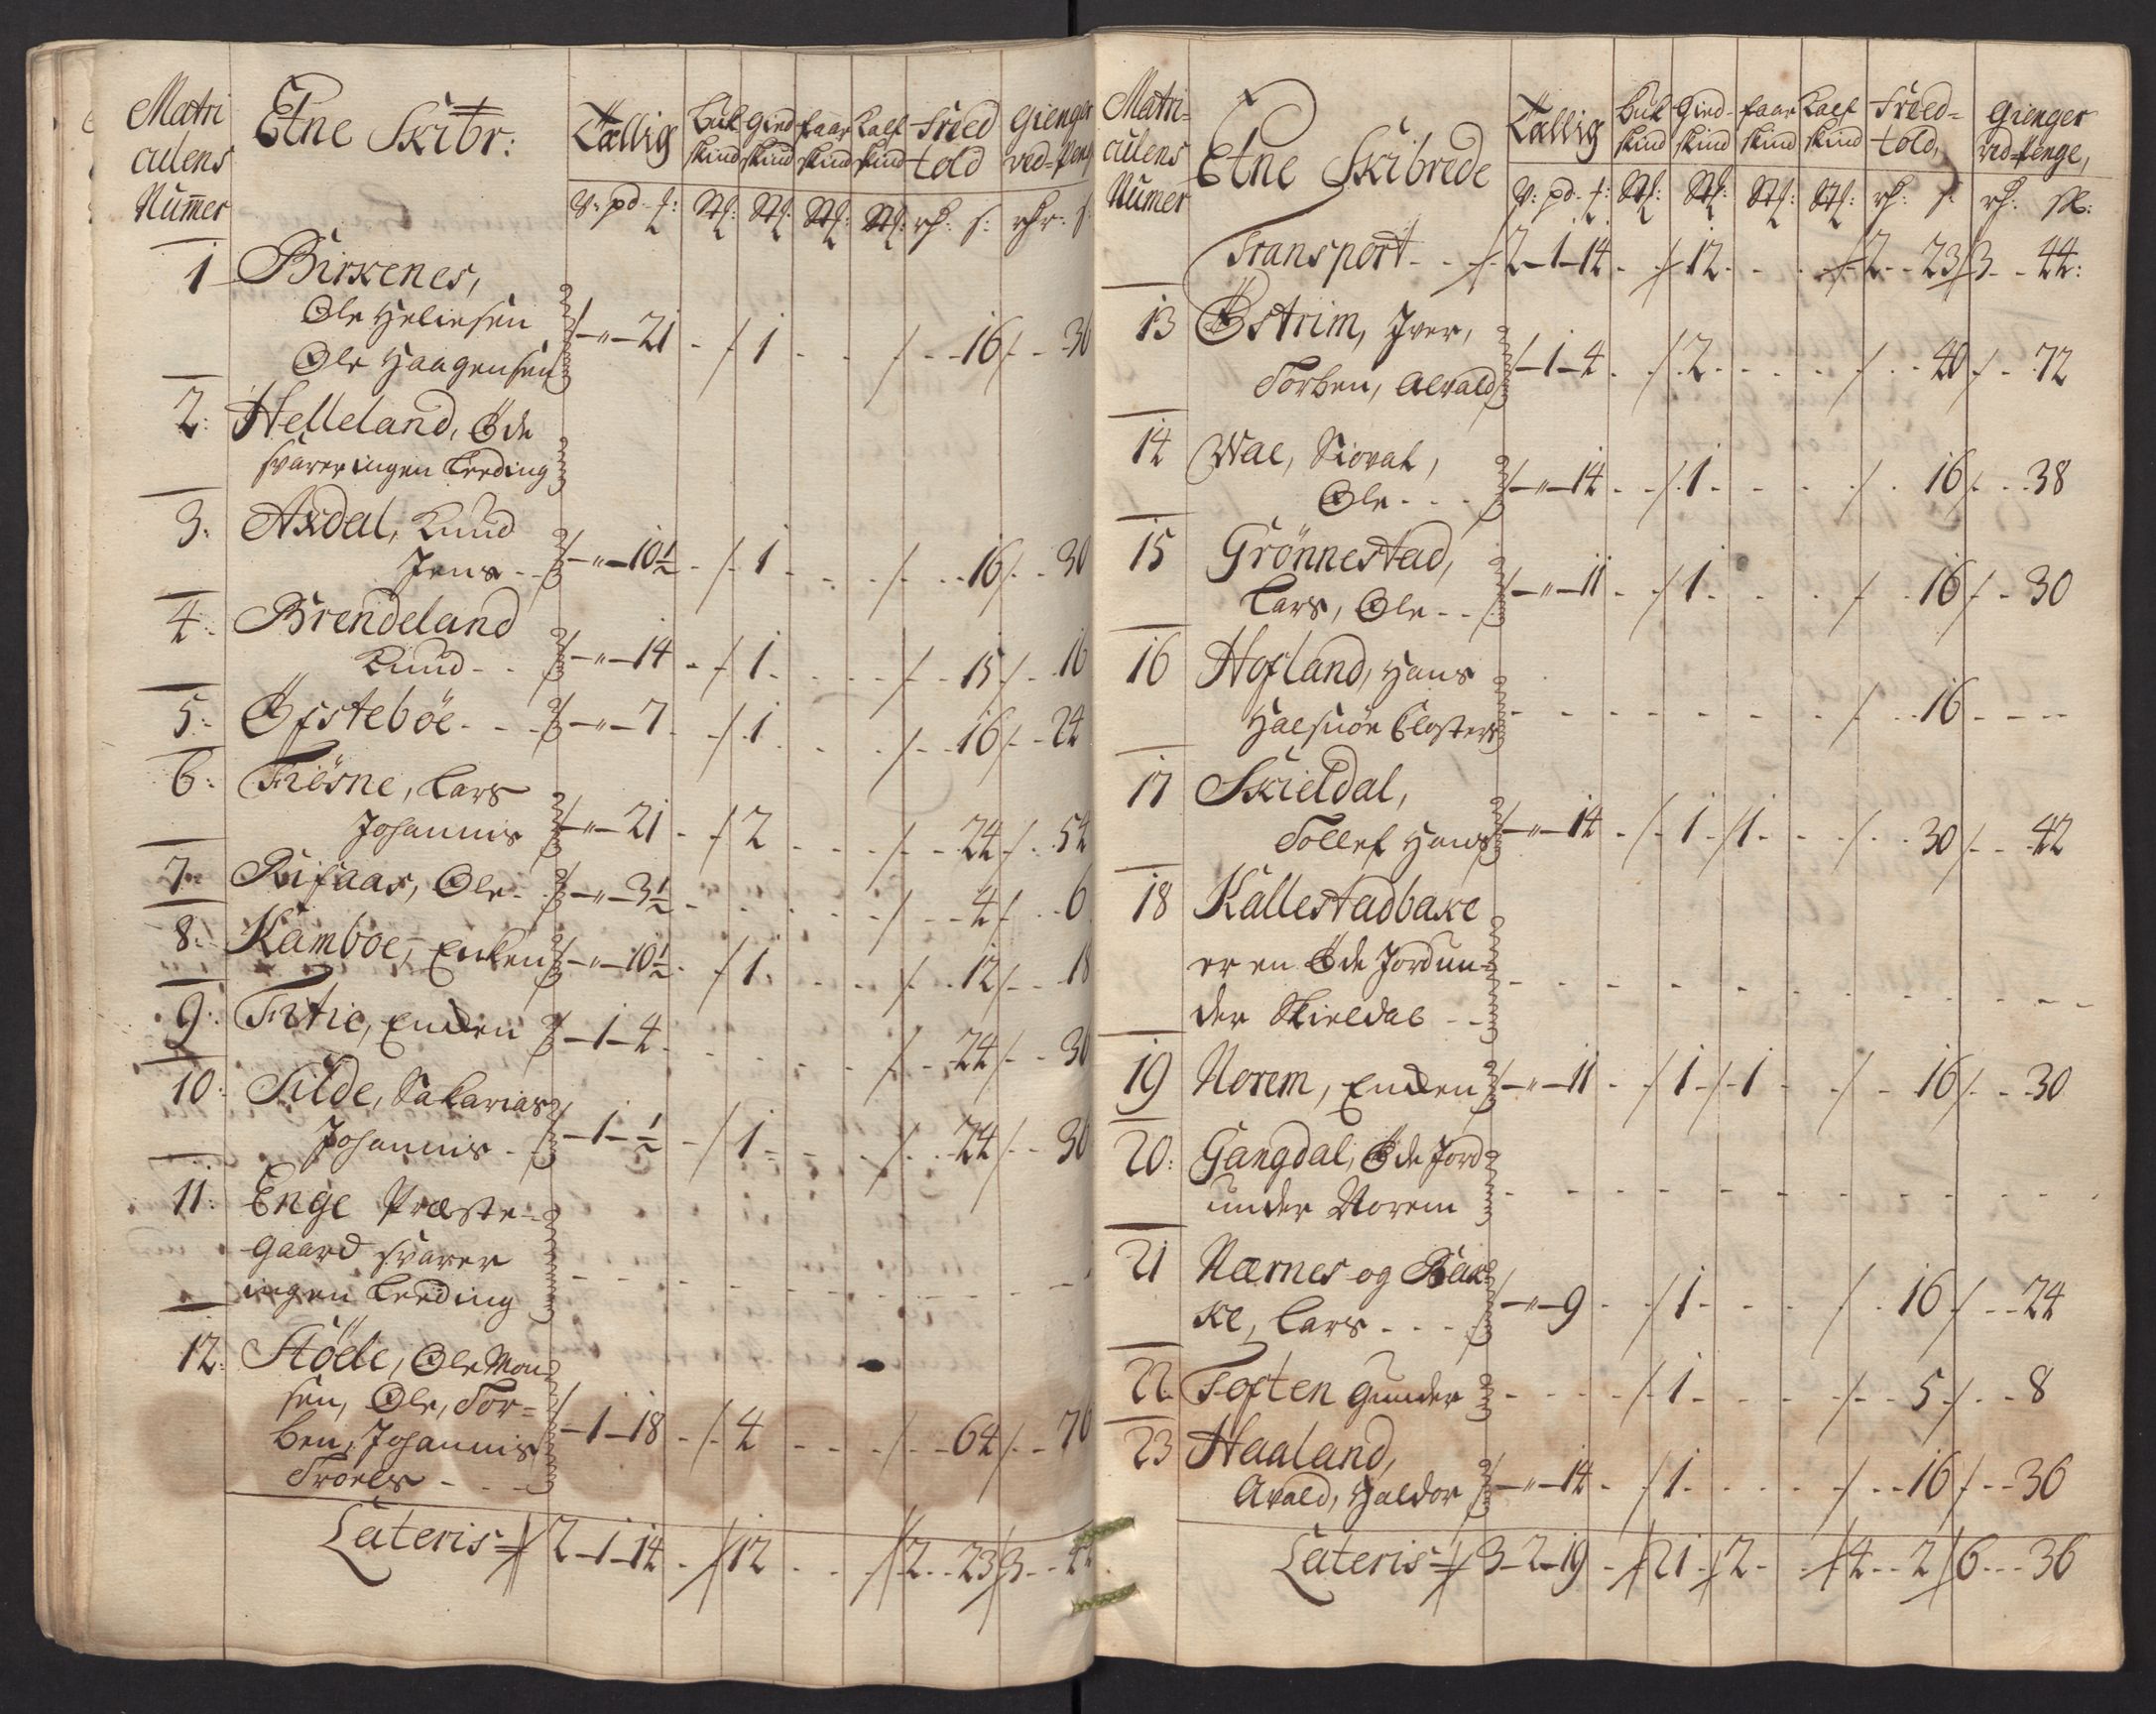 Matri
culens
Nummer
Etne Skibr:
Tallig
Buk
skind
Gied
skind
faar
skind
Kalf
skind
Freed
told
Gienger
ved-Peng
V: pd. f:
Stk: Stk: Stk: Stk: rh: s: rhr: s
1 Birkenes,
Ole Heliesen
Ole Haagensen -"-21 1 16 30
2: Helleland, Öde
svarer ingen Leeding
3: Axdal, Knud
Jens -"-10½ 1 16 30
4: Brendeland
Knud -"-14 1 15 16
5: Östebøe -"-7 1 16 24
6: Fiösne, Lars
Johannis -"-21 2 24 54
7: Rifaas, Ole -"-3½ 4 6
8: Kamboe, Enken -"-10½ 1 12 18
9: Fitie, Enken -1-4 24 30
10: Silde, Sakarias
Johannis -1-½ 1 24 30
11: Enge Præste-
gaard svarer
ingen Leeding
12: Stöele, Ole Mon
sen, Ole, Tor=
ben, Johannis
Troels -1-18 4 64 70
Lateris 2-1-14 12 2 23 3 44
Matri=
culens
Numer
Etne Skibrede
Tallig
Buk
skind
Gied-
skind
faar
skind
Kalf
skind
Freed=
told,
Gienger
ved-penge,
V: pd. f: Stk: Stk: Stk: Stk: rh: s. rh: sk:
Transport 2-1-14 12 2 23 3 44:
13 Östrim, Iver,
Torben, Alvald -1-4 2 40 72
14 Wae, Siovat,
Ole -"-14 1 16 38
15 Grönnestad,
Lars, Ole -"-11 1 16 30
16 Hofland, Hans
Halsnöe Closters 16
17 Skieldal,
Tollef Hans -"-14 1 1 30 42
18 Kallestadbake
er en Öde Jord un-
der Skieldal
19 Norem, Enken -"-11 1 1 16 30
20: Gangdal, Öde Jord
under Norem
21 Nærnes og Bak
ke, Lars -"-9 1 16 24
22 Toften Gunder 1 5 8
23 Haaland,
Avald, Haldor -"-14 1 16 36
Lateris 3-2-19 21 2 4 2 6 36